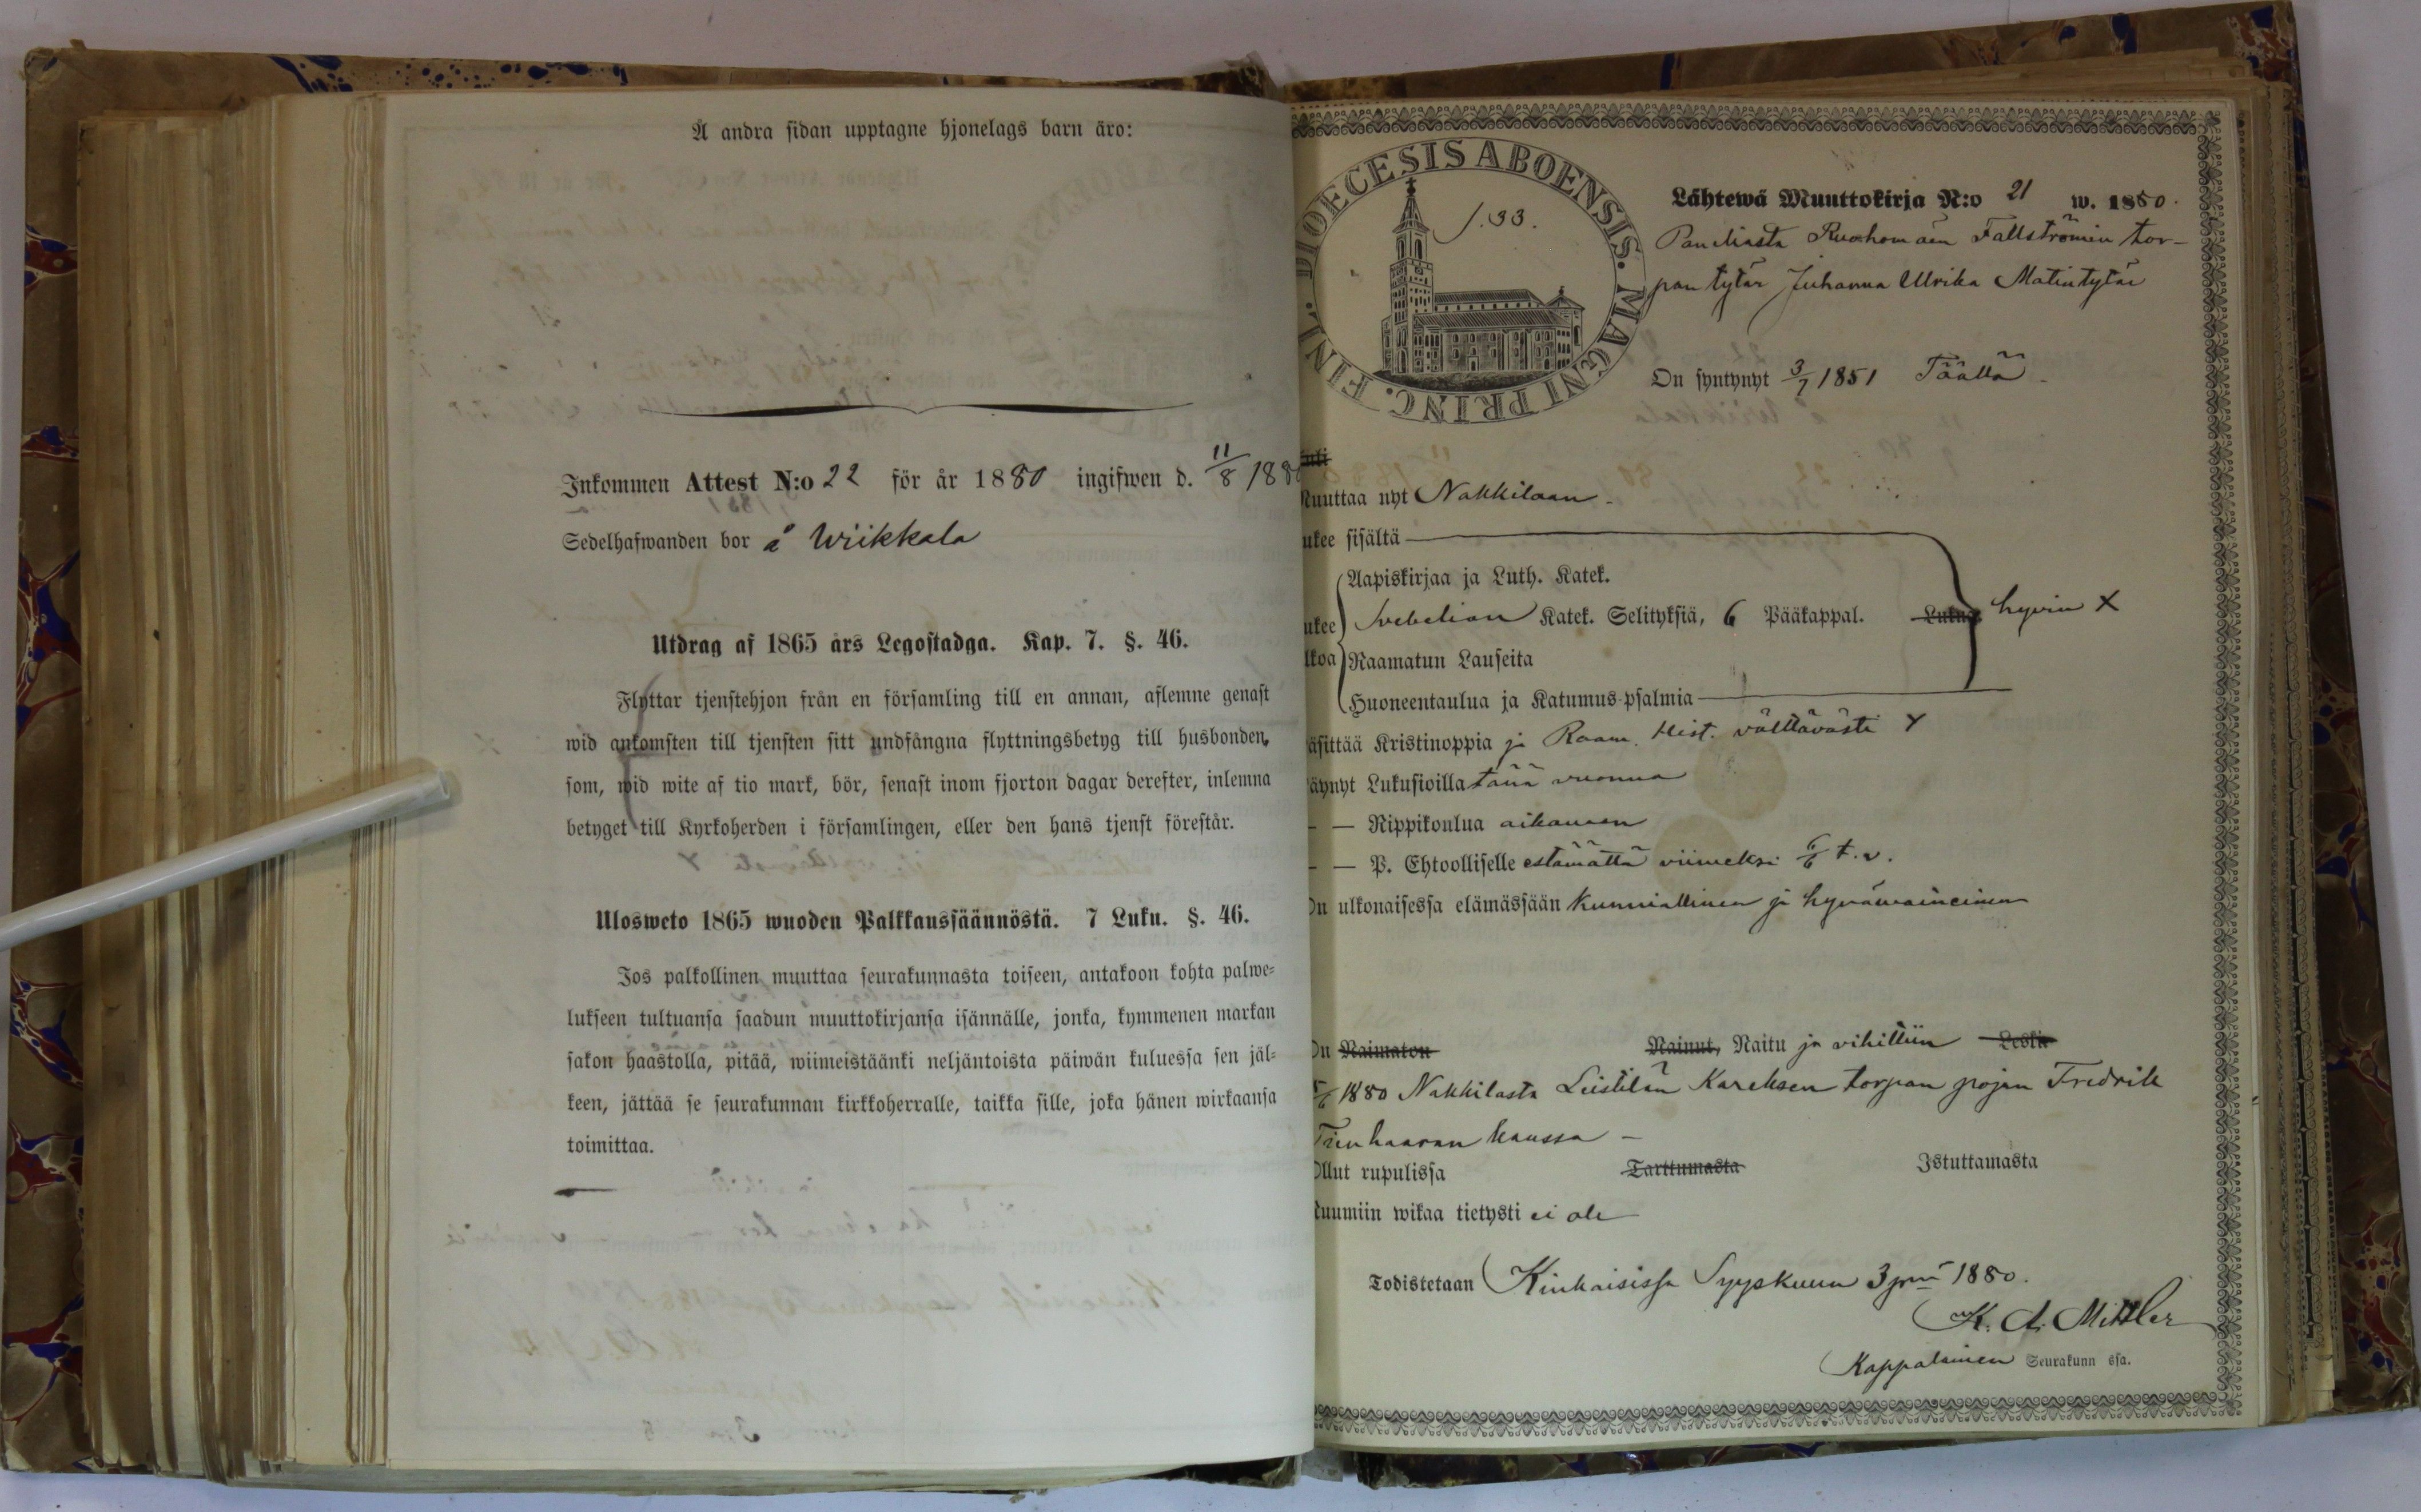 Å andra sidan upptagne hjonelags barn äro:
Inkommen Attest N:o 22 för år 1880 ingifwen d. 11/8 188
Sedelhafwanden bor å Wiikkala
Utdrag af 1865 års Legostadga. Kap. 7. §. 46.
Flyttar tjenstehjon från en församling till en annan, aflemne genast
wid ankomsten till tjensten sitt undfångna flyttningsbetyg till husbonden,
som, wid wite af tio mark, bör, senast inom fjorton dagar derefter, inlemna
betyget till Kyrkoherden i församlingen, eller den hans tjenst förestår.
Ulosweto 1865 wuoden Palkkaussäännöstä. 7 Luku. §. 46.
Jos palkollinen muuttaa seurakunnasta toiseen, antakoon kohta palwe-
lukseen tultuansa saadun muuttokirjansa isännälle, jonka, kymmenen markan
sakon haastolla, pitää, wiimeistäänki neljäntoista päiwän kuluessa sen jäl-
keen, jättää se seurakunnan kirkkoherralle, taikka sille, joka hänen wirkaansa
toimittaa.
DIOECESIS ABOENSIS. MAGNI PRINC. FINL.
s. 33.
Lähtewä Muuttokirja N:o 21 w. 1880.
Paneliasta Ruohomäen Fallströmin tor-
pan tytär Juhanna Ulrika Matintytär
On syntynyt 3/7 1851 Täällä
Muuttaa nyt Nakkilaan
ukee sisältä
Aapiskirjaa ja Luth. Katek.
ukee Svebelian Katek. Selityksiä, 6 Pääkappal. Lukuja hyvin X
lkoa Raamatun Lauseita
Huoneentaulua ja Katumus-psalmia
äsittää Kristinoppia ja Raam. Hist. välttävästi
äynyt Lukusioilla tänä vuonna
— — Rippikoulua aikanaan
— — P. Ehtoolliselle estämättä viimeksi 6/6 t. v.
On ulkonaisessa elämässään kunniallinen ja hyvämaineinen
On Naimaton Nainut, Naitu ja vihittiin Leski
1880 Nakkilasta Leistilän Kareksen torpan pojan Fredrik
Tienhaaran kanssa —
Ollut rupulissa Tarttumasta Istuttamasta
Ruumiin wikaa tietysti ei ole
Todistetaan Kiukaisissa Syyskuun 3 pnä 1880.
K. A. Mittler
Kappalainen Seurakunn ssa.